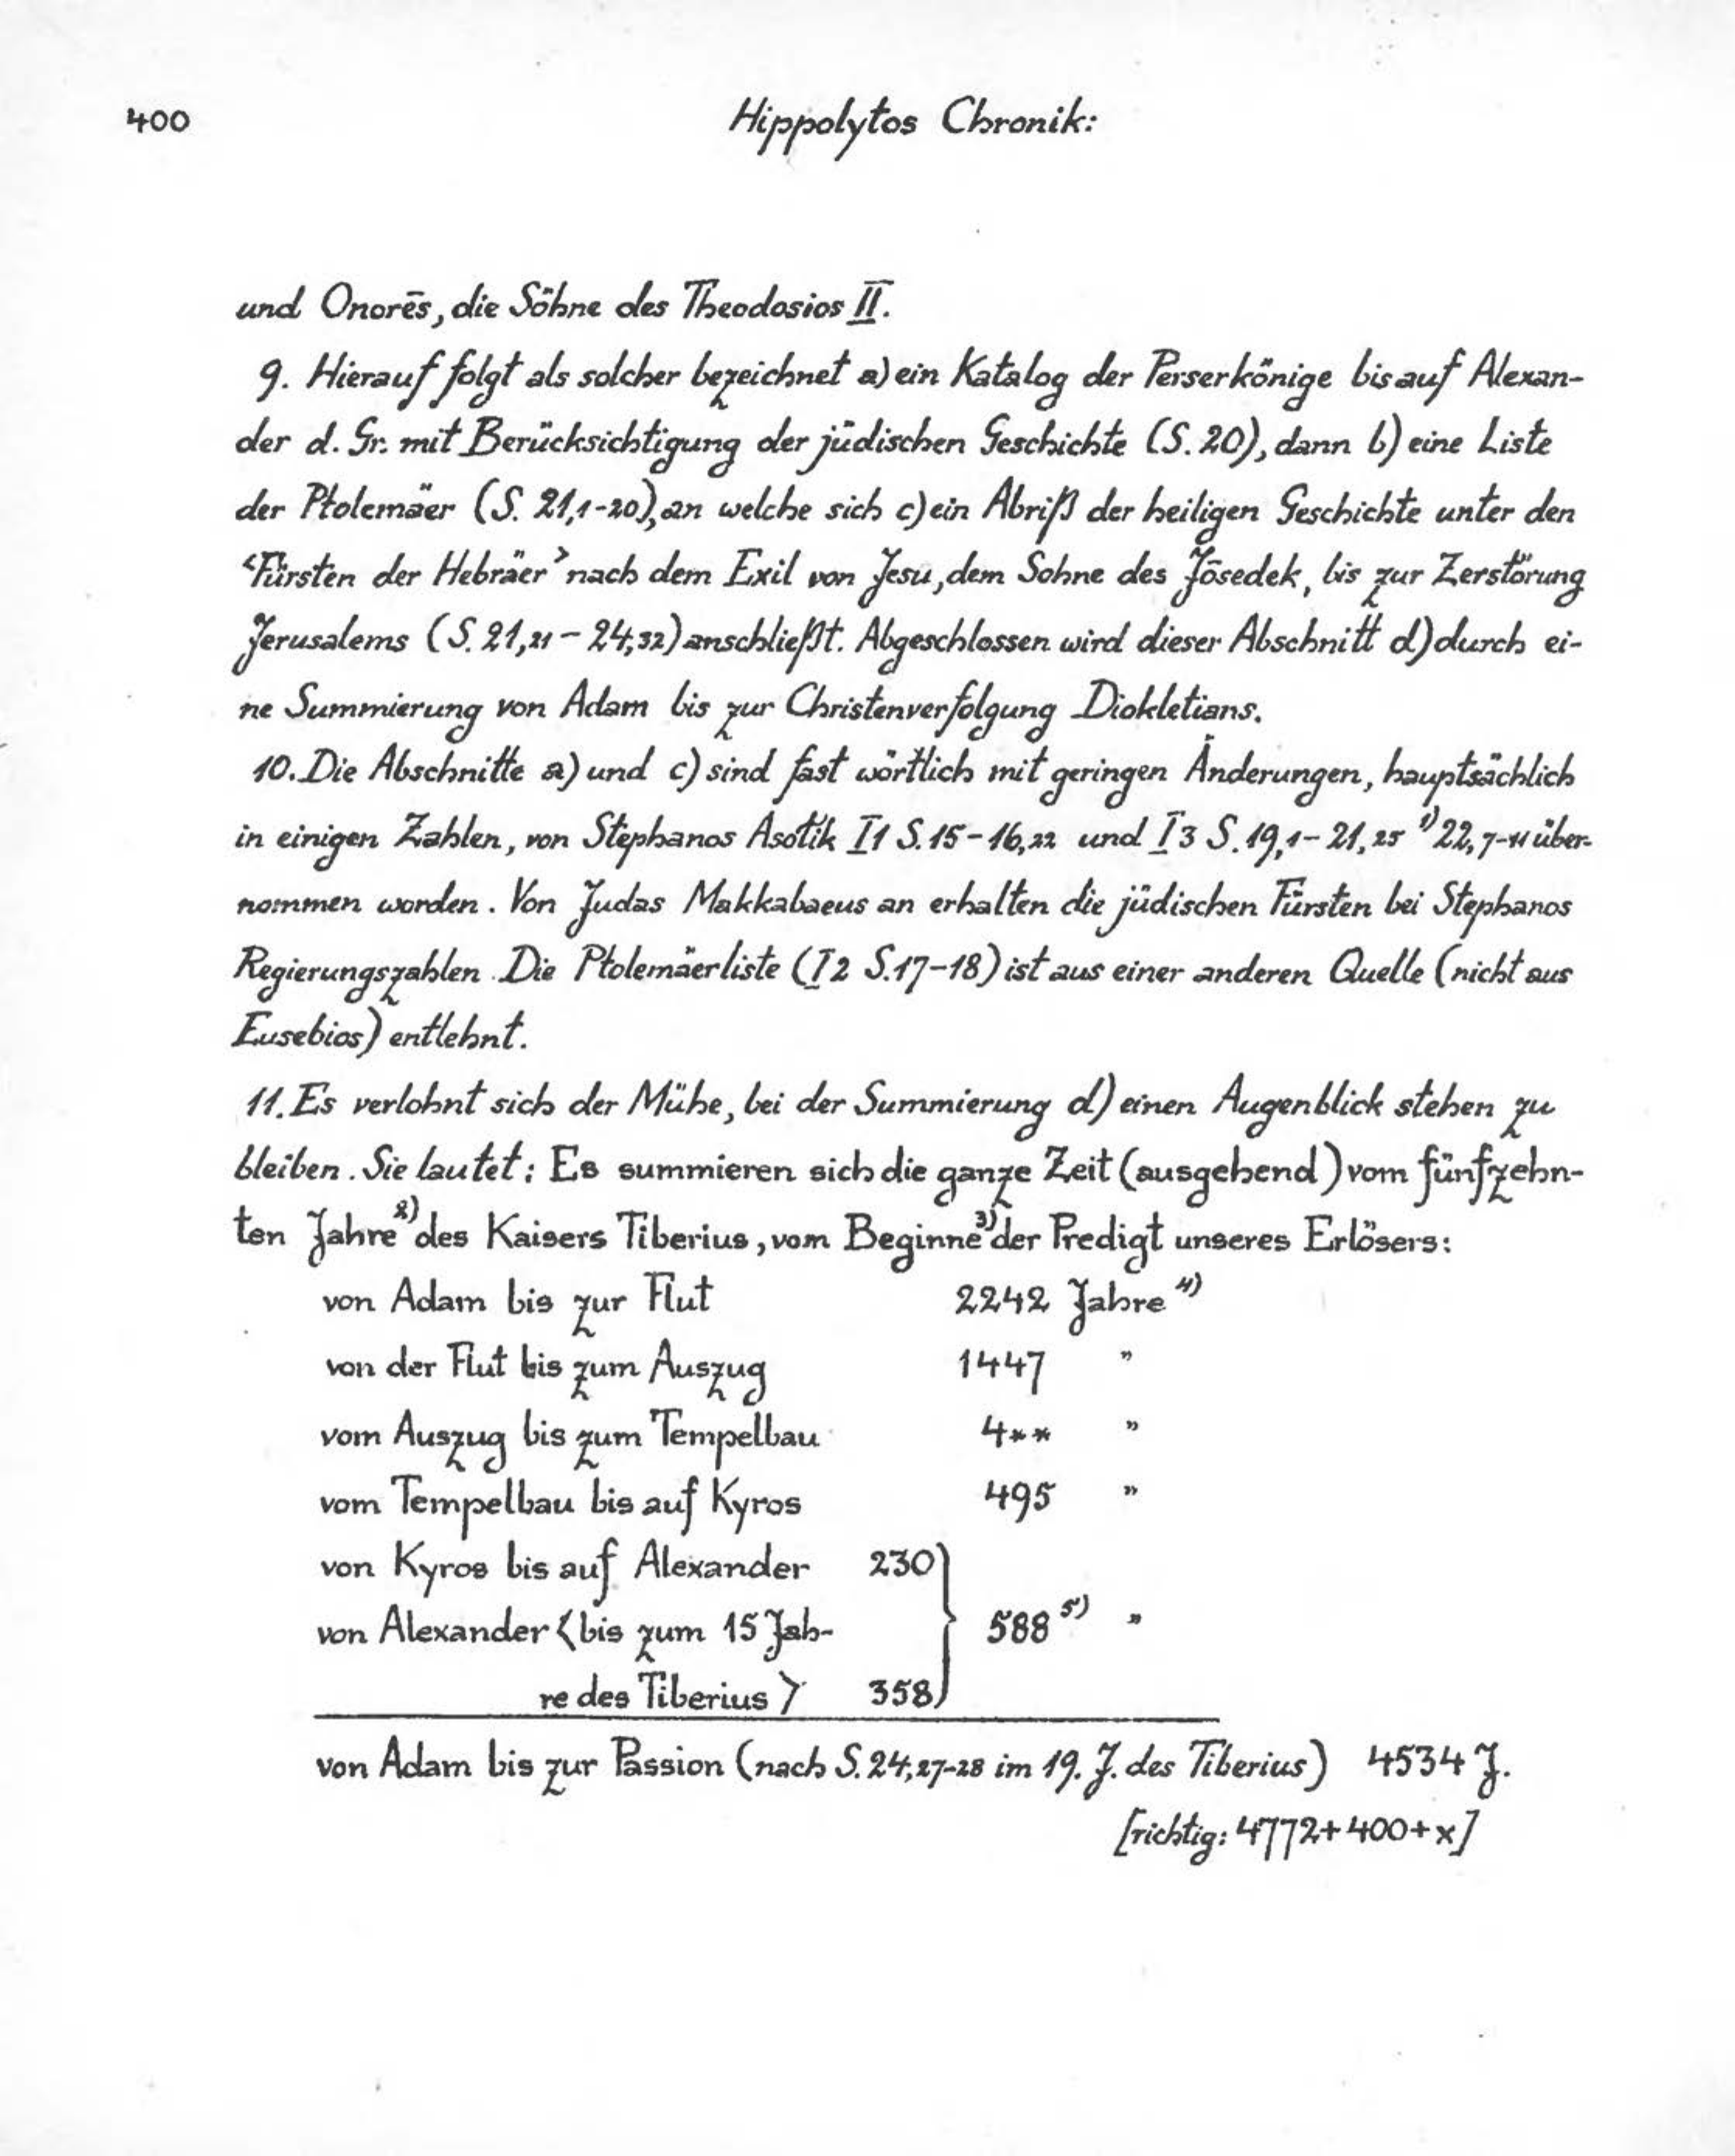 400
Hippolytos Chronik:
und Onorēs, die Söhne des Theodosios II.
9. Hierauf folgt als solcher bezeichnet a) ein Katalog der Perserkönige bis auf Alexan-
der d. Gr. mit Berücksichtigung der jüdischen Geschichte (S. 20), dann b) eine Liste
der Ptolemäer (S. 21,1-20), an welche sich c) ein Abriß der heiligen Geschichte unter den
‹Fürsten der Hebräer› nach dem Exil von Jesu, dem Sohne des Jōsedek, bis zur Zerstörung
Jerusalems (S. 21,21 - 24,32) anschließt. Abgeschlossen wird dieser Abschnitt d) durch ei-
ne Summierung von Adam bis zur Christenverfolgung Diokletians.
10. Die Abschnitte a) und c) sind fast wörtlich mit geringen Änderungen, hauptsächlich
in einigen Zahlen, von Stephanos Asołik I1 S. 15-16,22 und I3 S. 19,1-21,25 ¹⁾ 22,7-11 über-
nommen worden. Von Judas Makkabaeus an erhalten die jüdischen Fürsten bei Stephanos
Regierungszahlen. Die Ptolemäerliste (I2 S. 17-18) ist aus einer anderen Quelle (nicht aus
Eusebios) entlehnt.
11. Es verlohnt sich der Mühe, bei der Summierung d) einen Augenblick stehen zu
bleiben. Sie lautet: Es summieren sich die ganze Zeit (ausgehend) vom fünfzehn-
ten Jahre²⁾ des Kaisers Tiberius, vom Beginne³⁾ der Predigt unseres Erlösers:
von Adam bis zur Flut 2242 Jahre⁴⁾
von der Flut bis zum Auszug 1447 "
vom Auszug bis zum Tempelbau 4** "
vom Tempelbau bis auf Kyros 495 "
von Kyros bis auf Alexander 230
von Alexander ⟨bis zum 15 Jah- } 588⁵⁾ "
re des Tiberius⟩ 358
von Adam bis zur Passion (nach S. 24,27-28 im 19. J. des Tiberius) 4534 J.
[richtig: 4772+400+x]